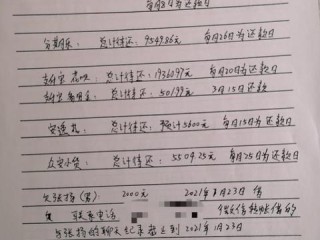 每月8日为还款日
分期乐：总计待还：9549.86元 每月26日为还款日
支付宝 花呗：总计待还：19360.97元 每月20日为还款日
总计待还：50199元 3月15日还款
安逸花：总计待还：预计5600元 每月15日为还款日
众安小贷：总计待还：5504.25元 每月25日为还款日
2000元 2021年1月23日 借
联系电话
的聊天纪录截止到2021年1月23日